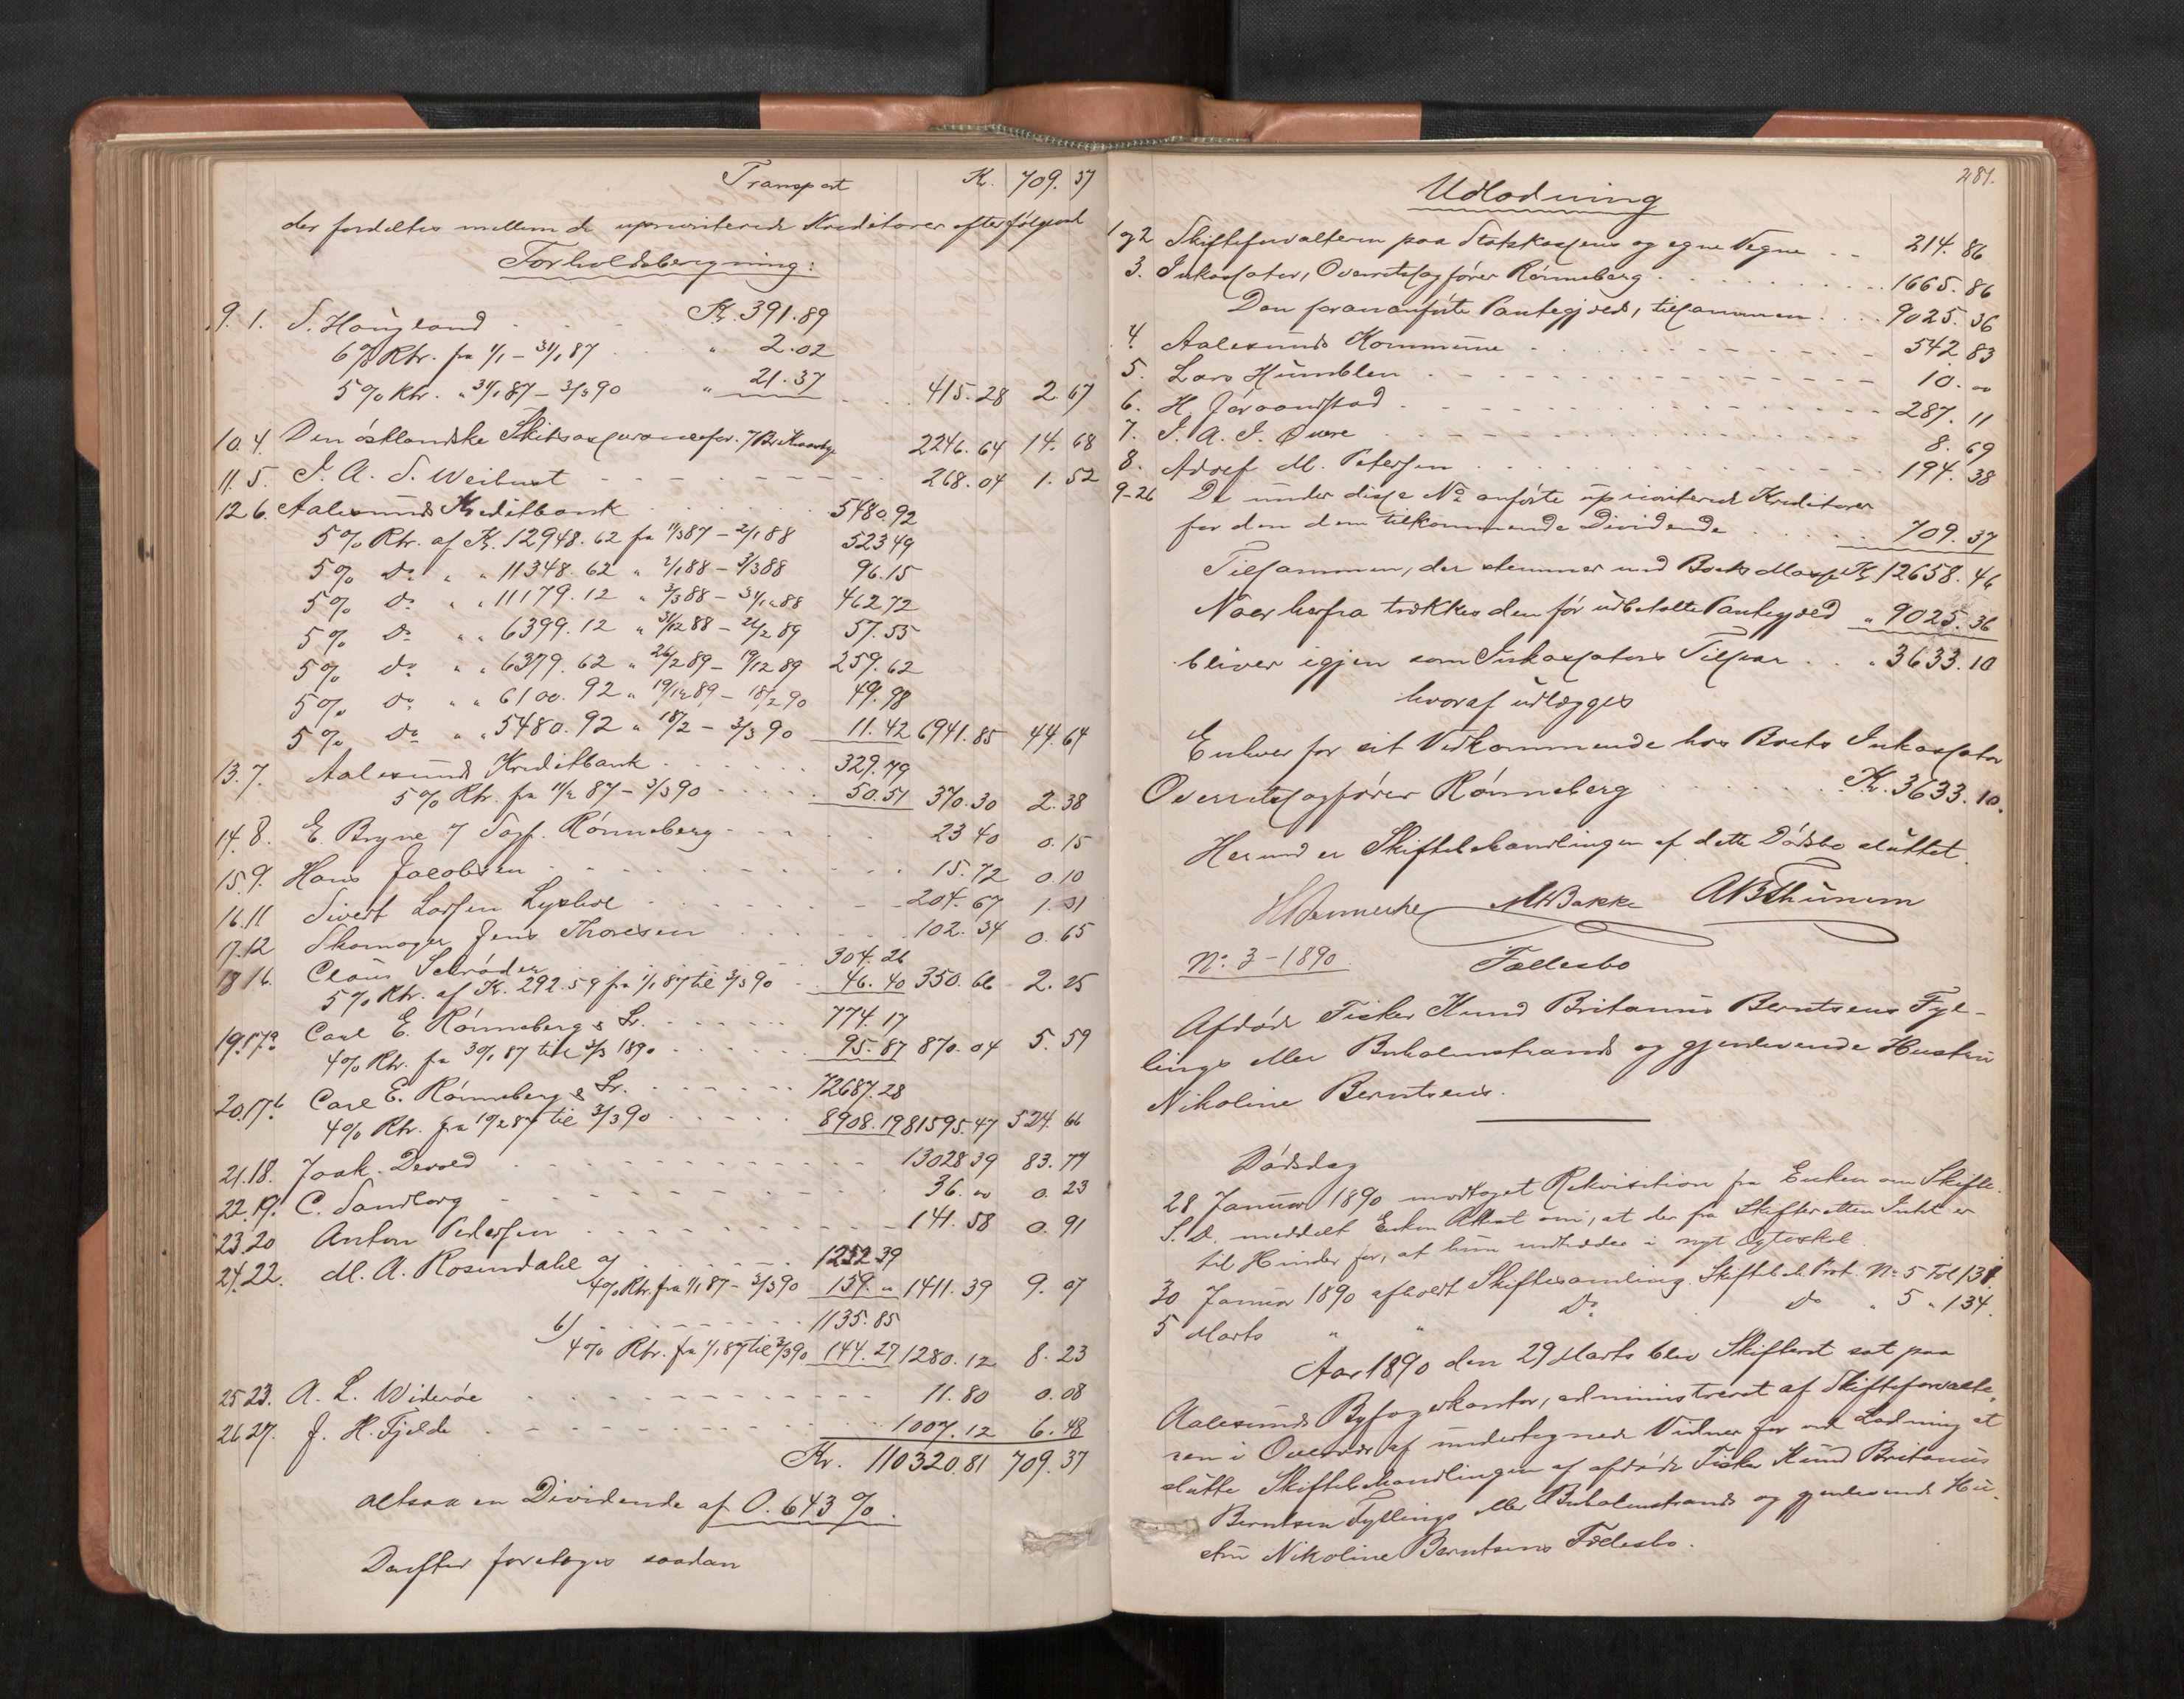 Transport Kr. 709. 37
der fordeltes mellem de uprioriterede Kreditorer efter følgende
Forholdsberegning:
9. 1. S. Haugland Kr. 391.89
6% Rtr. fra 1/1 – 31/1 87 " 2.02
5% Rtr. " 31/1 87 – 3/3 90 " 21.37 415.28 2.67
10. 4. Den østlandske Skibsassuranceför. 2246.64 14.68
11. 5. J. A. S. Weibust 268.04 1.52
12 6. Aalesunds Kreditbank 5480.92
5% Rtr. af Kr. 12948.62 fra 11/3 87 – 2/1 88 523 49
5% Do " " 11348.62 " 2/1 88 – 3/3 88 96.15
5% Do " " 11179.12 " 3/3 88 – 31/12 88 462 72
5% Do " " 6399.12 " 31/12 88 – 26/2 89 57.55
5% Do " " 6379.62 " 26/2 89 – 19/12 89 259.62
5% Do " " 6100.92 " 19/12 89 – 18/2 90 49.98
5% Do " " 5480.92 " 18/2 – 3/3 90 11.42 6941.85 44.64
13. 7. Aalesunds Kreditbank 329.79
5% Rtr. fra 11/2 87 – 3/3 90 50.51 370.30 2.38
14. 8. E. Bryne / Sagf. Rønneberg 23 40 0.15
15. 9. Hans Jacobsen 15.72 0.10
16. 11 Sivert Larsen Lyshol 204.67 1.31
17. 12 Skomager Jens Thoresen 102.34 0.65
18 16. Claus Schrøder 304.26
5% Rtr. af Kr. 292.59 fra 1/1 87 til 3/3 90 46.40 350.66 2.25
19. 17a Carl E. Rønneberg & Sr. 774.17
4% Rtr. fra 30/1 87 til 3/3 1890 95.87 870.04 5.59
20. 17b Carl E. Rønneberg & Sr. 72687.28
4% Rtr. fra 10/2 87 til 3/3 90 8908.19 81595.47 524.66
21. 18. Joak. Devold 13028 39 83.77
22. 19. C. Sandborg 36.00 0.23
23. 20 Anton Pedersen 141.58 0.91
24. 22. M. A. Rosendahl a) 1252.39
4% Rtr. fra 1/1 87 – 3/3 90 159. " 1411.39 9.07
b) 1135.85
4% Rtr. fra 1/1 87 til 3/3 90 144.27 1280.12 8.23
25 23. A. L. Widerøe 11.80 0.08
26 27. J. H. Fjelde 1007.12 6.48
Kr. 110320.81 709.37
altsaa en Dividende af 0.643 %.
Derefter foretoges saadan
281.
Udlodning
1 og 2 Skifteforvalteren paa Statskassens og egne Vegne 214.86
3. Inkassator, Overretssagfører Rønneberg 1665.86
Den forananførte Pantegjæld, tilsammen 9025.36
4. Aalesunds Kommune 542 83
5. Lars Humblen 10.00
6. H. Jøraandstad 287.11
7. J. A. J. Øvere 8.69
8. Adolf M. Petersen 194.38
9-26 De under disse No anførte uprioriterede Kreditorer
for den dem tilkommende Dividende 709.37
Tilsammen, der stemmer med Boets Masse Kr. 12658.46
Naar herfra trækkes den før udbetalte Pantegjæld " 9025.36
bliver igjen som Inkassators Tilsvar " 3633.10
hvoraf udlægges
Enhver for sit Vedkommende hos Boets Inkassator
Overretssagfører Rønneberg Kr. 3633.10.
Hermed er Skiftebehandlingen af dette Dødsbo sluttet.
MBakke ABThunem
No. 3 – 1890. Fællesbo
Afdøde Fisker Knud Britanus Berntsens Fyl-
lings eller Buholmstrands og gjenlevende Hustru
Nikoline Berntsens.
Dødsdag
28 Januar 1890 modtaget Rekvisition fra Enken om Skifte.
S. D. meddelt Enken Attest om, at der fra Skifteretten Intet er
til Hinder for, at hun indtræder i nyt Ægteskab.
30 Januar 1890 afholdt Skiftesamling. Skiftebeh. Prot. No 5 Fol 131
5 Marts " " Do Do " 5 " 134.
Aar 1890 den 29 Marts blev Skifteret sat paa
Aalesunds Byfogedkontor, administreret af Skifteforvalte-
ren i Overvær af undertegnede Vidner for ved Lodning at
slutte Skiftebehandlingen af afdøde Fisker Knud Britanus
Berntsen Fyllings eller Buholmstrands og gjenlevende Hu-
stru Nikoline Berntsens Fællesbo.